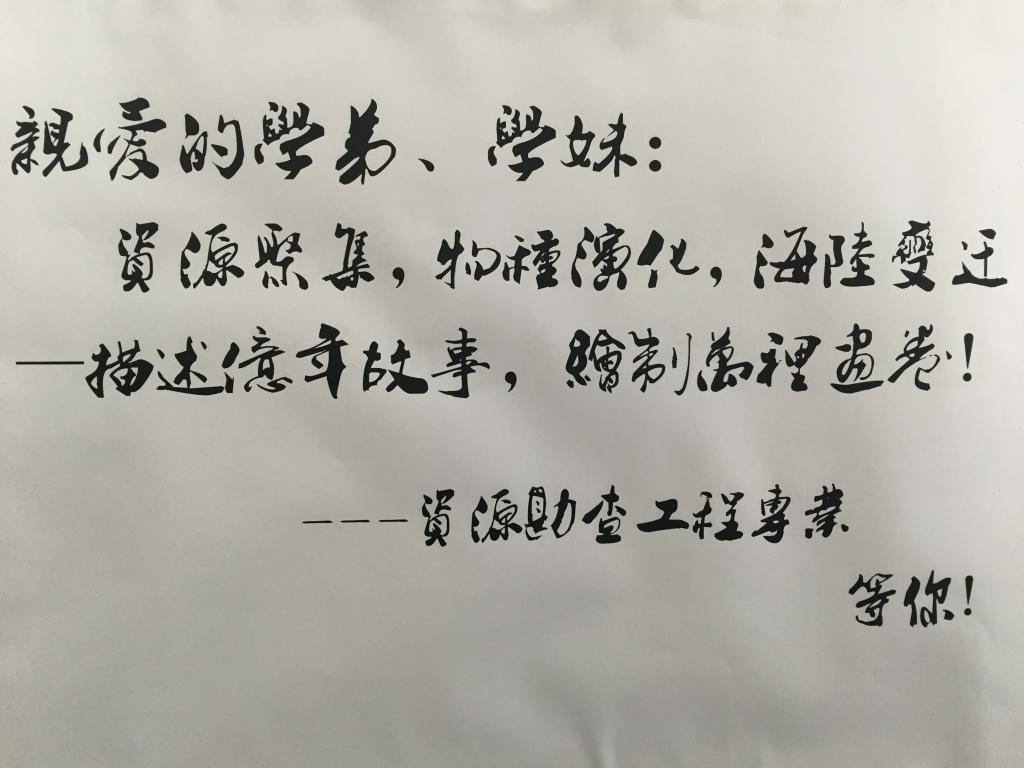 親愛的學弟、學妹：
資源聚集，物種演化，海陸變迁
—描述億年故事，繪制萬裡畫卷！
---資源勘查工程專業
等你！